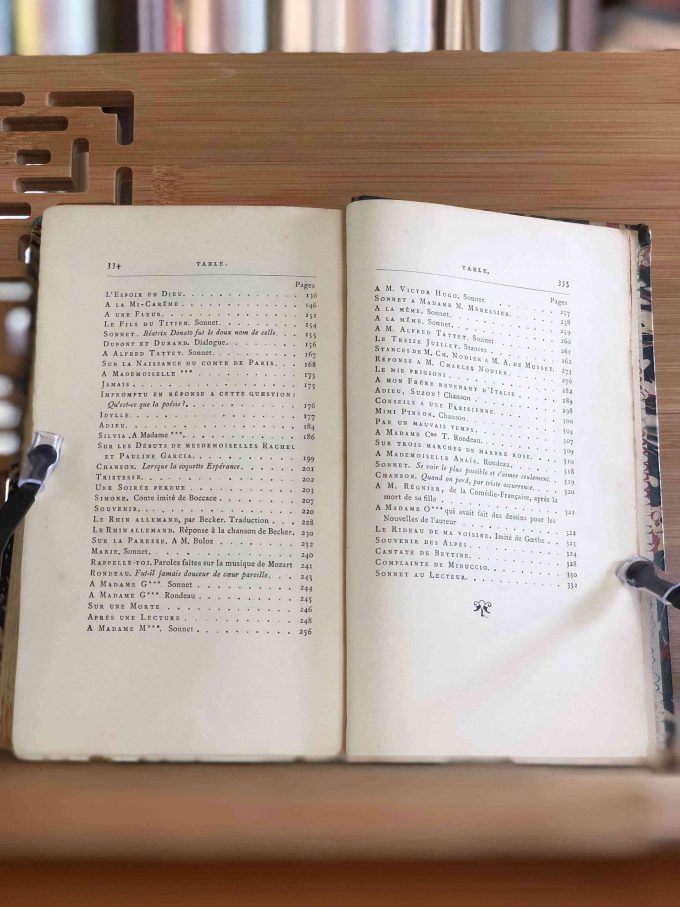 334 TABLE.
Pages
L'Espoir en Dieu. 136
A la Mi-Carême 146
A une Fleur. 151
Le Fils du Titien. Sonnet. 154
Sonnet. Béatrix Donato fut le doux nom de celle. 155
Dupont et Durand. Dialogue. 156
A Alfred Tattet. Sonnet. 167
Sur la Naissance du comte de Paris. 168
A Mademoiselle *** 173
Jamais 175
Impromptu en réponse a cette question:
Qu'est-ce que la poésie?. 176
Idylle. 177
Adieu. 184
Silvia. A Madame ***. 186
Sur les Débuts de mesdemoiselles Rachel
et Pauline Garcia. 199
Chanson. Lorsque la coquette Espérance. 201
Tristesse. 202
Une Soirée perdue 203
Simone. Conte imité de Boccace 207
Souvenir. 220
Le Rhin allemand, par Becker. Traduction 228
Le Rhin allemand. Réponse à la chanson de Becker. 230
Sur la Paresse. A M. Buloz 232
Marie. Sonnet. 240
Rappelle-toi. Paroles faites sur la musique de Mozart 241
Rondeau. Fut-il jamais douceur de cœur pareille. 243
A Madame G***. Sonnet 244
A Madame G***. Rondeau 245
Sur une Morte 246
Après une Lecture 248
A Madame M***. Sonnet 256
TABLE. 335
Pages
A M. Victor Hugo. Sonnet. 257
Sonnet a Madame N. Menessier. 258
A la même. Sonnet. 259
A la même. Sonnet. 260
A M. Alfred Tattet. Sonnet 261
Le Treize Juillet. Stances 262
Stances de M. Ch. Nodier a M. A. de Musset. 273
Réponse a M. Charles Nodier. 276
Le mie prigioni 282
A mon Frère revenant d'Italie 289
Adieu, Suzon! Chanson 298
Conseils a une Parisienne. 300
Mimi Pinson. Chanson. 304
Par un mauvais temps. 307
A Madame Cne T. Rondeau. 309
Sur trois marches de marbre rose. 310
A Mademoiselle Anaïs. Rondeau. 318
Sonnet. Se voir le plus possible et s'aimer seulement. 319
Chanson. Quand on perd, par triste occurrence. 320
A M. Régnier, de la Comédie-Française, après la
mort de sa fille 321
A Madame O*** qui avait fait des dessins pour les
Nouvelles de l'auteur 322
Le Rideau de ma voisine. Imité de Gœthe 323
Souvenir des Alpes. 324
Cantate de Bettine. 328
Complainte de Minuccio. 330
Sonnet au Lecteur. 332